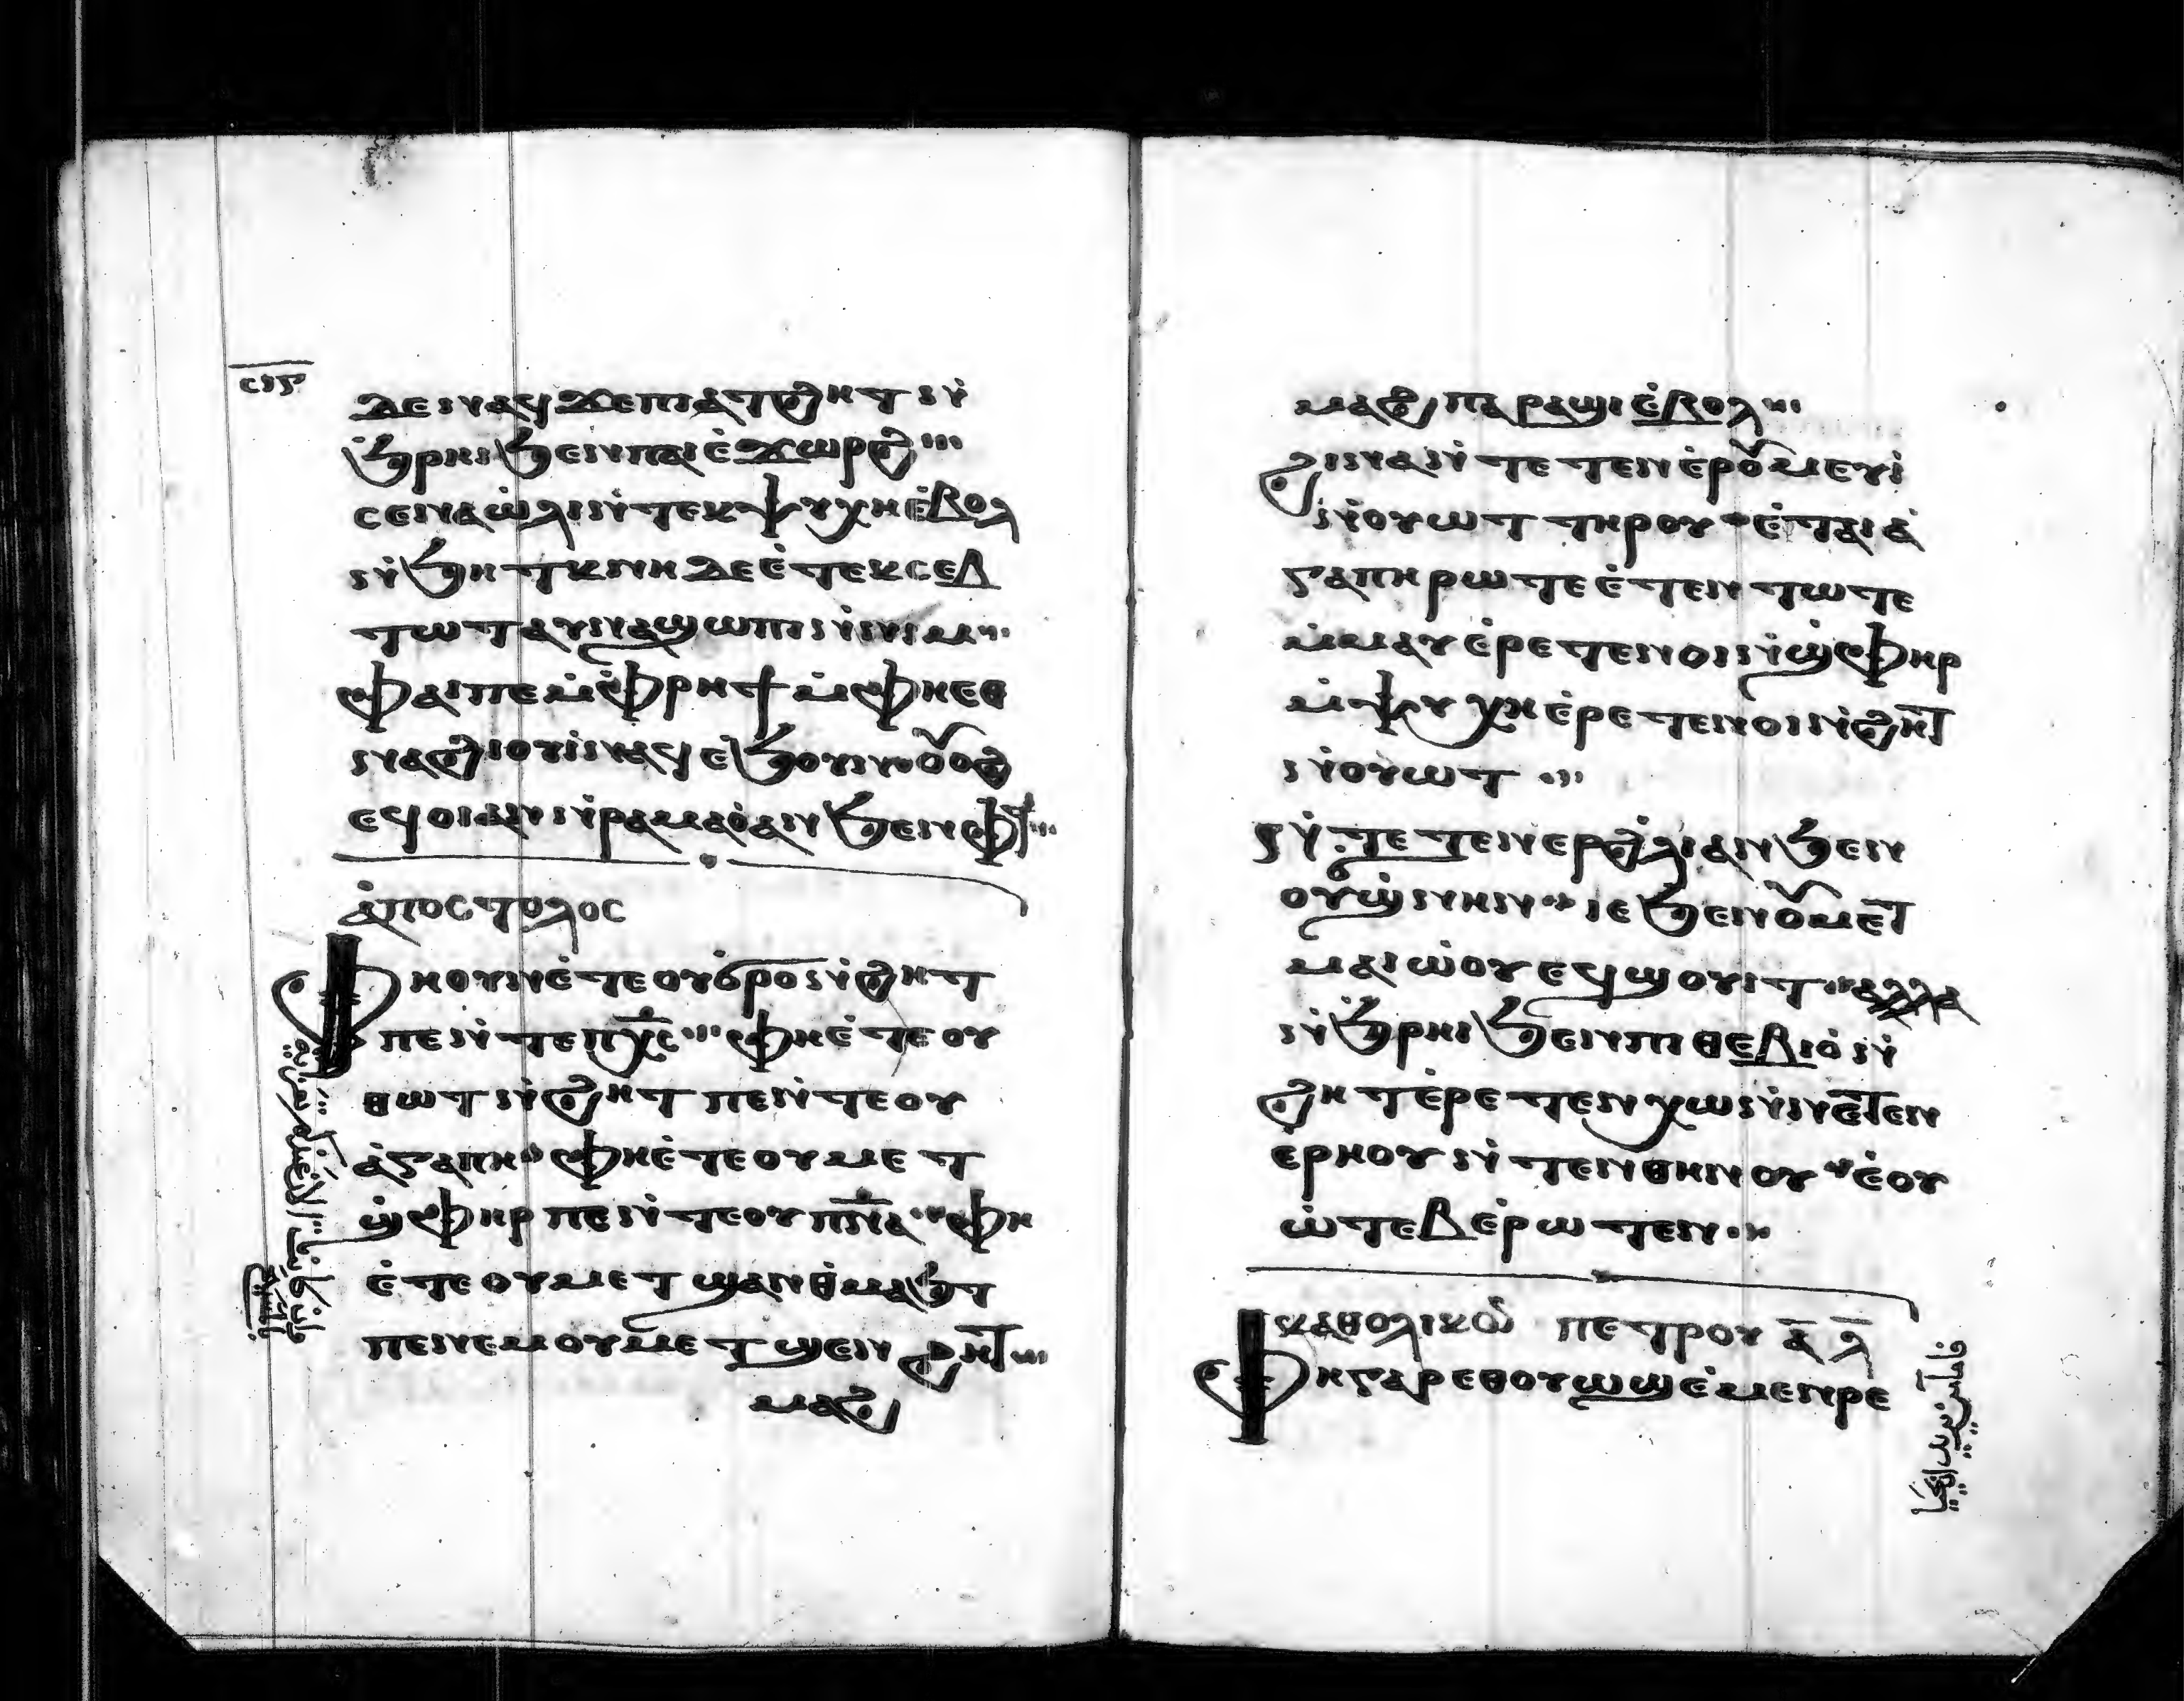 ⲥⲓⲋ
ϫⲉ ⲛⲁϥ ϫⲉ ⲡⲓⲁⲧϩⲏⲧ ⲛ̀
ϧ̀ⲣⲏⲓ ϧⲉⲛ ⲡⲁⲓⲉ̀ϫⲱⲣϩ
ⲥⲉⲛⲁⲱ̀ⲗⲓ ⲛ̀ⲧⲉⲕⲯⲩⲭⲏ ⲉ̀ⲃⲟⲗ
ⲛ̀ϧⲏⲧⲕ ⲛⲏ ⲇⲉ ⲉ̀ⲧⲉⲕⲥⲉⲃ
ⲧⲱⲧⲟⲩ ⲛⲁϣⲱⲡⲓ ⲛ̀ⲛⲓⲙ
ⲫⲁⲓ ⲡⲉ ⲙ̀ⲫⲣⲏϯ ⲙ̀ⲫⲏⲉⲑ
ⲛⲁϩⲓⲟⲩⲓ̀ ⲛⲁϥ ⲉ̀ϧⲟⲩⲛ ⲟⲩⲟϩ
ⲉϥⲟⲓ ⲁⲛ ⲛ̀ⲣⲁⲙⲁⲟ̀ ⲁⲛ ϧⲉⲛ ⲫϯ
ⲁ̀ⲡⲟⲥⲧⲟⲗⲟⲥ
ⲫⲏ ⲟⲩⲛ ⲉ̀ⲧⲉ ⲟⲩϭⲣⲟ ⲛ̀ϩⲏⲧ
ⲡⲉ ⲛ̀ⲧⲉ ⲡⲭ̅ⲥ ⲫⲏ ⲉ̀ⲧⲉ ⲟⲩ
ⲑⲱⲧ ⲛ̀ϩⲏⲧ ⲡⲉ ⲛ̀ⲧⲉ ⲟⲩ
ⲁ̀ⲅⲁⲡⲏ ⲫⲏ ⲉ̀ⲧⲉ ⲟⲩⲙⲉⲧ
ϣ̀ⲫⲏⲣ ⲡⲉ ⲛ̀ⲧⲉ ⲟⲩⲡ̅ⲛ̅ⲁ̅ ⲫⲏ
ⲉ̀ⲧⲉ ⲟⲩⲙⲉⲧϣⲁⲛⲑ̀ⲙⲁϧⲧ
ⲡⲉ ⲛⲉⲙ ⲟⲩⲙⲉⲧϣⲉⲛϩⲏϯ
ⲙⲁϩ
ⲙⲁϩ ⲡⲁⲣⲁϣⲓ ⲉ̀ⲃⲟⲗ
ϩⲓⲛⲁ ⲛ̀ⲧⲉⲧⲉⲛⲉ̀ⲣⲟⲩⲙⲉⲩⲓ̀
ⲛ̀ⲟⲩⲱⲧ ⲧⲏⲣⲟⲩ ⲉ̀ⲧⲁⲓⲁ̀
ⲅⲁⲡⲏ ⲣⲱ ⲧⲉ ⲉ̀ⲧⲉⲛⲧⲱⲧⲉ
ⲙ̀ⲙⲁⲩ ⲉ̀ⲣⲉⲧⲉⲛⲟⲓ ⲛ̀ϣ̀ⲫⲏⲣ
ⲙ̀ⲯⲩⲭⲏ ⲉ̀ⲣⲉⲧⲉⲛⲟⲓ ⲛ̀ϩⲏϯ
ⲛ̀ⲟⲩⲱⲧ
ⲛ̀ⲧⲉⲧⲉⲛⲉⲣ ϩ̀ⲗⲓ ⲁⲛ ϧⲉⲛ
ⲟⲩϣ̀ϭⲛⲏⲛ ⲓⲉ ϧⲉⲛ ⲟⲩⲙⲉⲧ
ⲙⲁⲓⲱ̀ⲟⲩ ⲉϥϣⲟⲩⲓⲧ ⲁⲗⲗⲁ
ⲛ̀ϧ̀ⲣⲏⲓ ϧⲉⲛ ⲡⲓⲑⲉⲃⲓⲟ̀ ⲛ̀
ϩⲏⲧ ⲉ̀ⲣⲉⲧⲉⲛⲭⲱ ⲛ̀ⲛⲉⲧⲉⲛ
ⲉⲣⲏⲟⲩ ⲛ̀ⲧⲉⲛⲑⲏⲛⲟⲩ ⲉ̀ⲟⲩ
ⲱ̀ⲧⲉⲃ ⲉ̀ⲣⲱⲧⲉⲛ
ⲕⲁⲑⲟⲗⲓⲕⲟⲩ ⲡⲉⲧⲣⲟⲩ ⲁ̅ ⲗ̅
ⲫⲏ ⲅⲁⲣ ⲉⲑⲟⲩⲱϣ ⲉ̀ⲙⲉⲛⲣⲉ